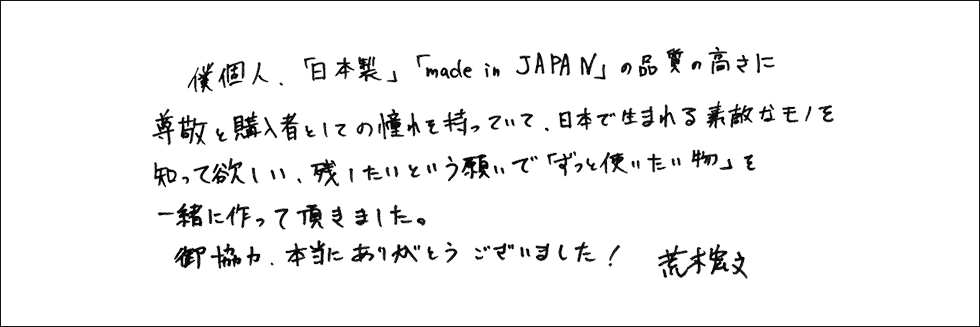 僕個人、「日本製」「made in JAPAN」の品質の高さに
尊敬と購入者としての憧れを持っていて、日本で生まれる素敵なモノを
知って欲しい、残したいという願いで「ずっと使いたい物」を
一緒に作って頂きました。
御協力、本当にありがとうございました！ 荒木宏文